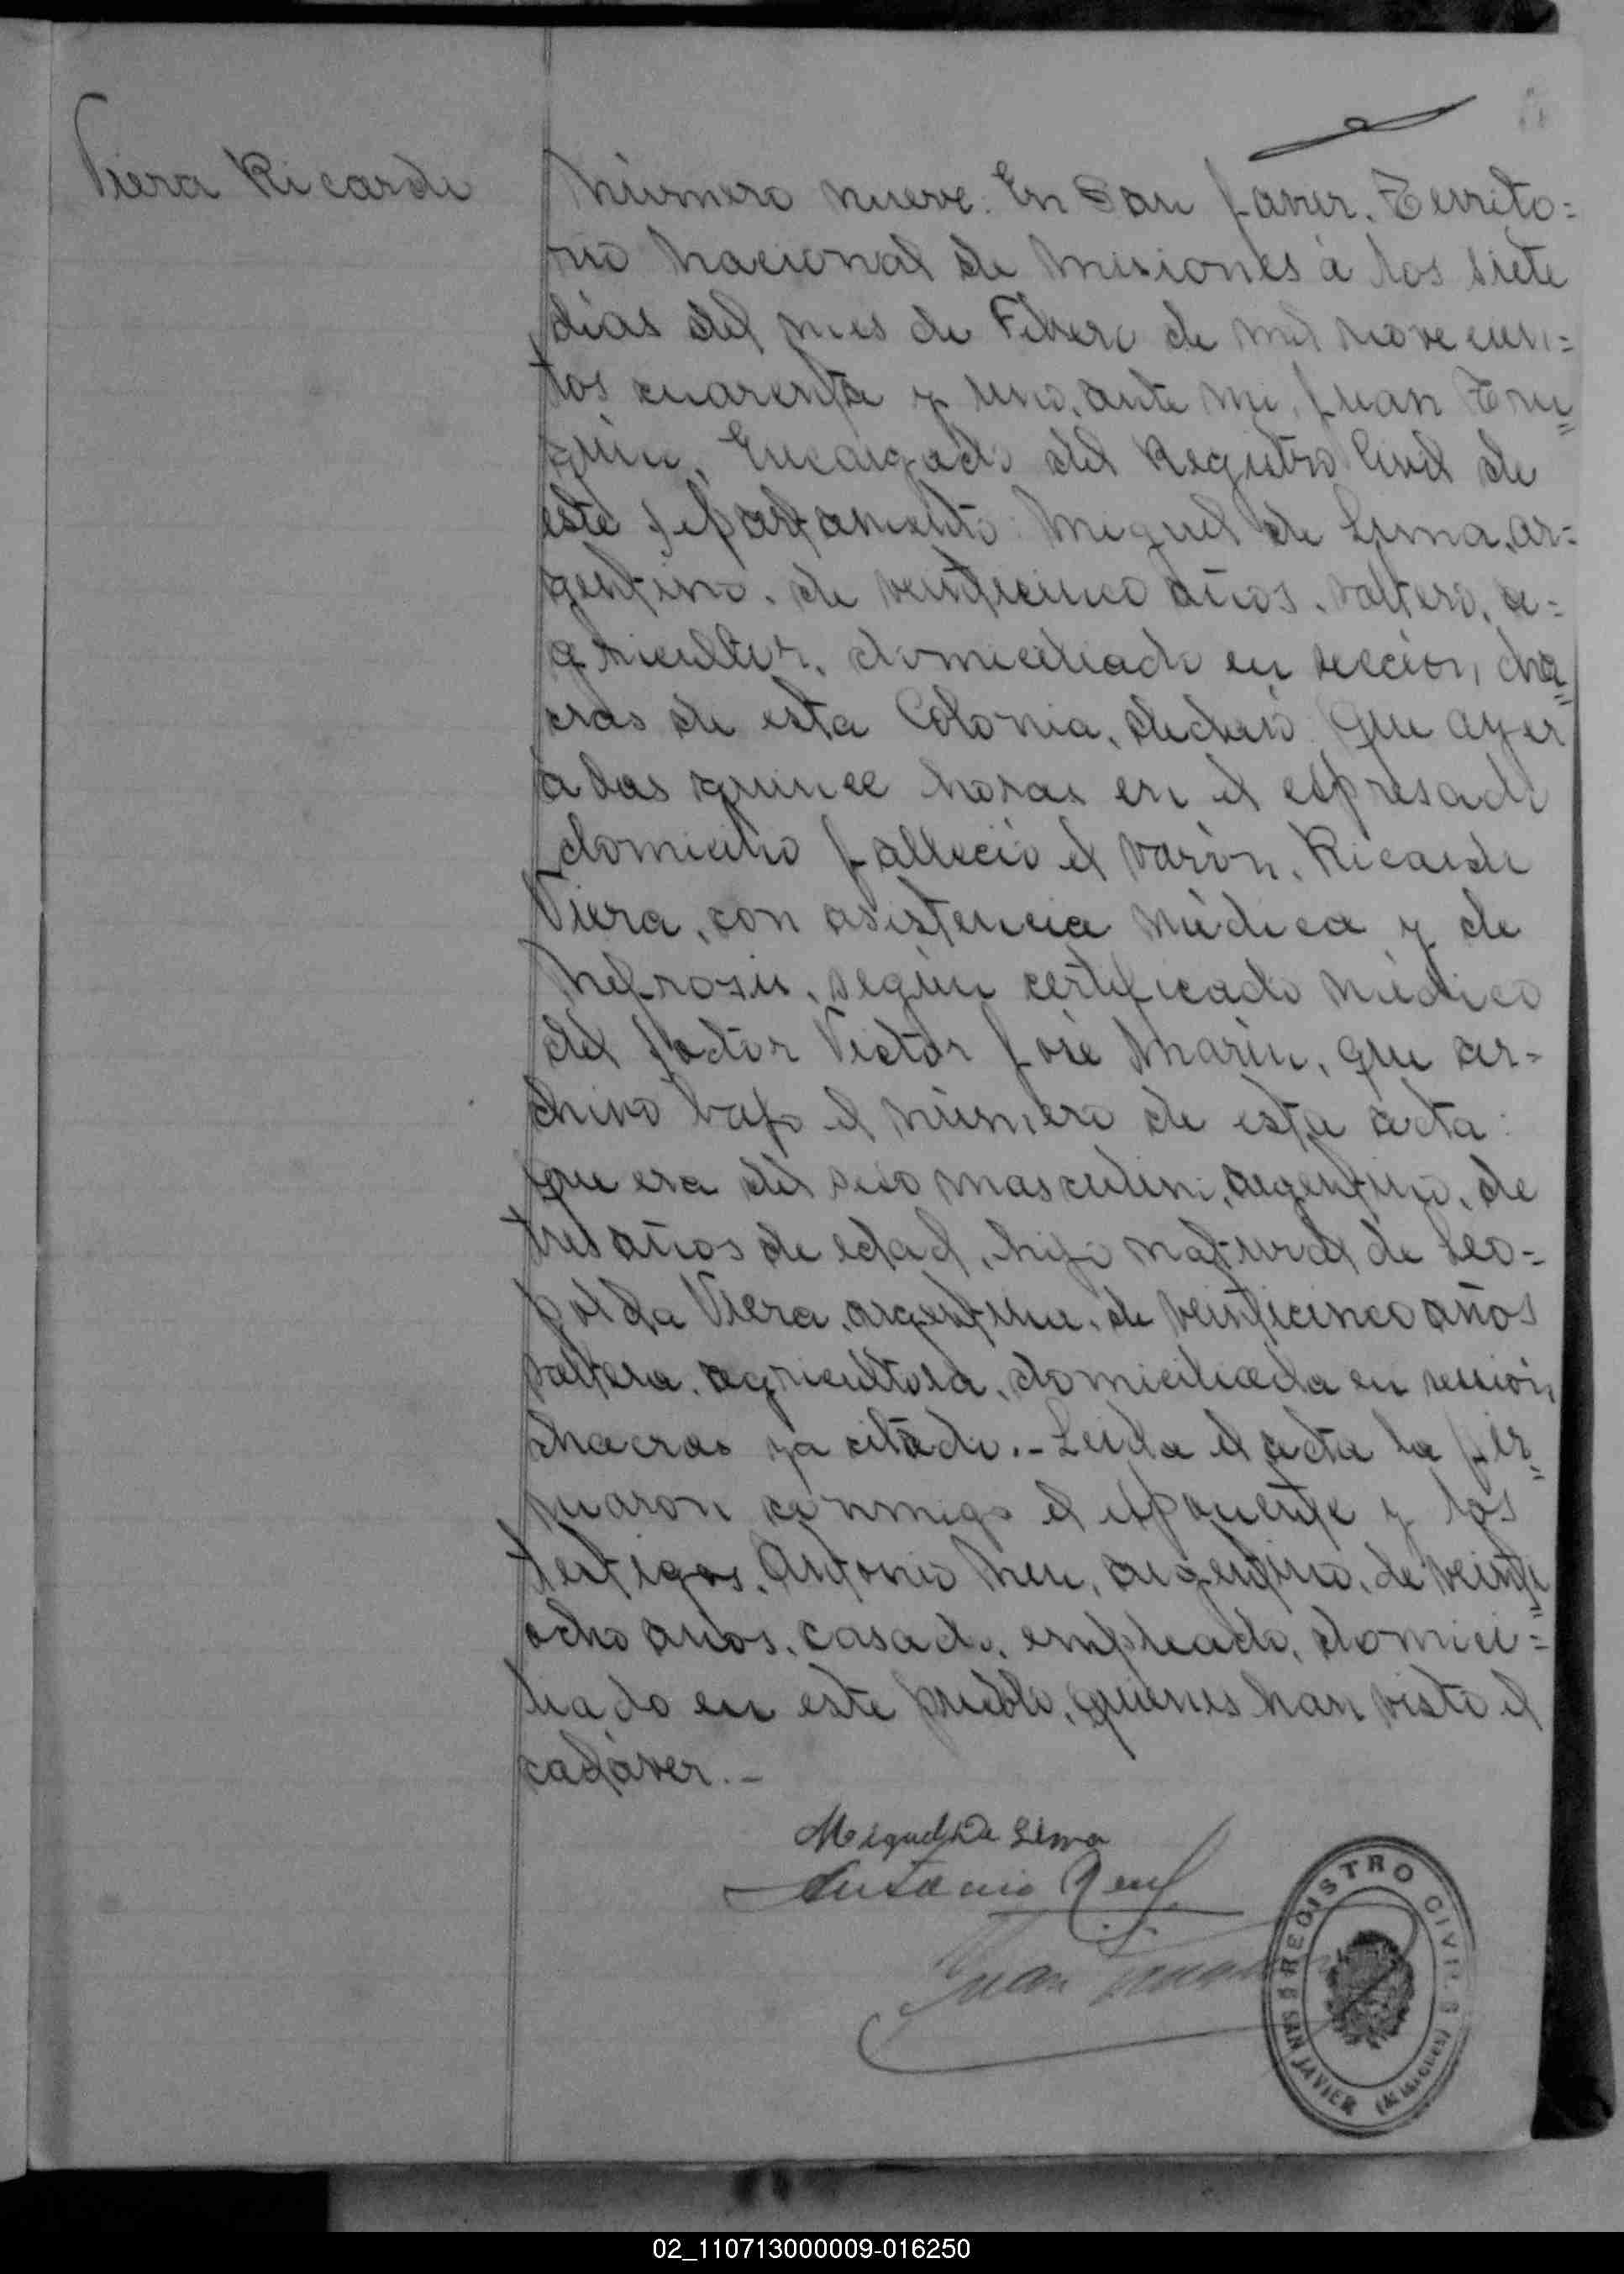 Viera Ricardo
Número nueve. En San Javier, Territo=
rio Nacional de Misiones á los siete
días del mes de Febrero de mil novecien=
tos cuarenta y uno, ante mi, Juan
Encargado del Registro Civil de
este departamento: Miguel de Lima, ar=
gentino, de veinticinco años, soltero, a=
gricultor, domiciliado en sección cha=
cras de esta Colonia, declaró: Que ayer
a las quince horas en el espresado
domicilio falleció el varón, Ricardo
Viera, con asistencia médica y de
Nefrosis, según certificado médico
del Doctor Victor José Marin, que ar=
chivo bajo el número de esta acta:
que era del sexo masculino, argentino, de
tres años de edad, hijo natural de Leo=
polda Viera, argentina, de veinticinco años
soltera, agricultora, domiciliada en sección
chacras ya citado.- Leida el acta la fir=
maron conmigo el esponente y los
testigos, Antonio argentino, de veinti=
ocho años, casado, empleado, domici=
liado en este pueblo, quienes han visto el
cadáver.-
Miguel De Lima
Antonio
Juan
REGISTRO CIVIL
SAN JAVIER (Misiones)
02_110713000009-016250